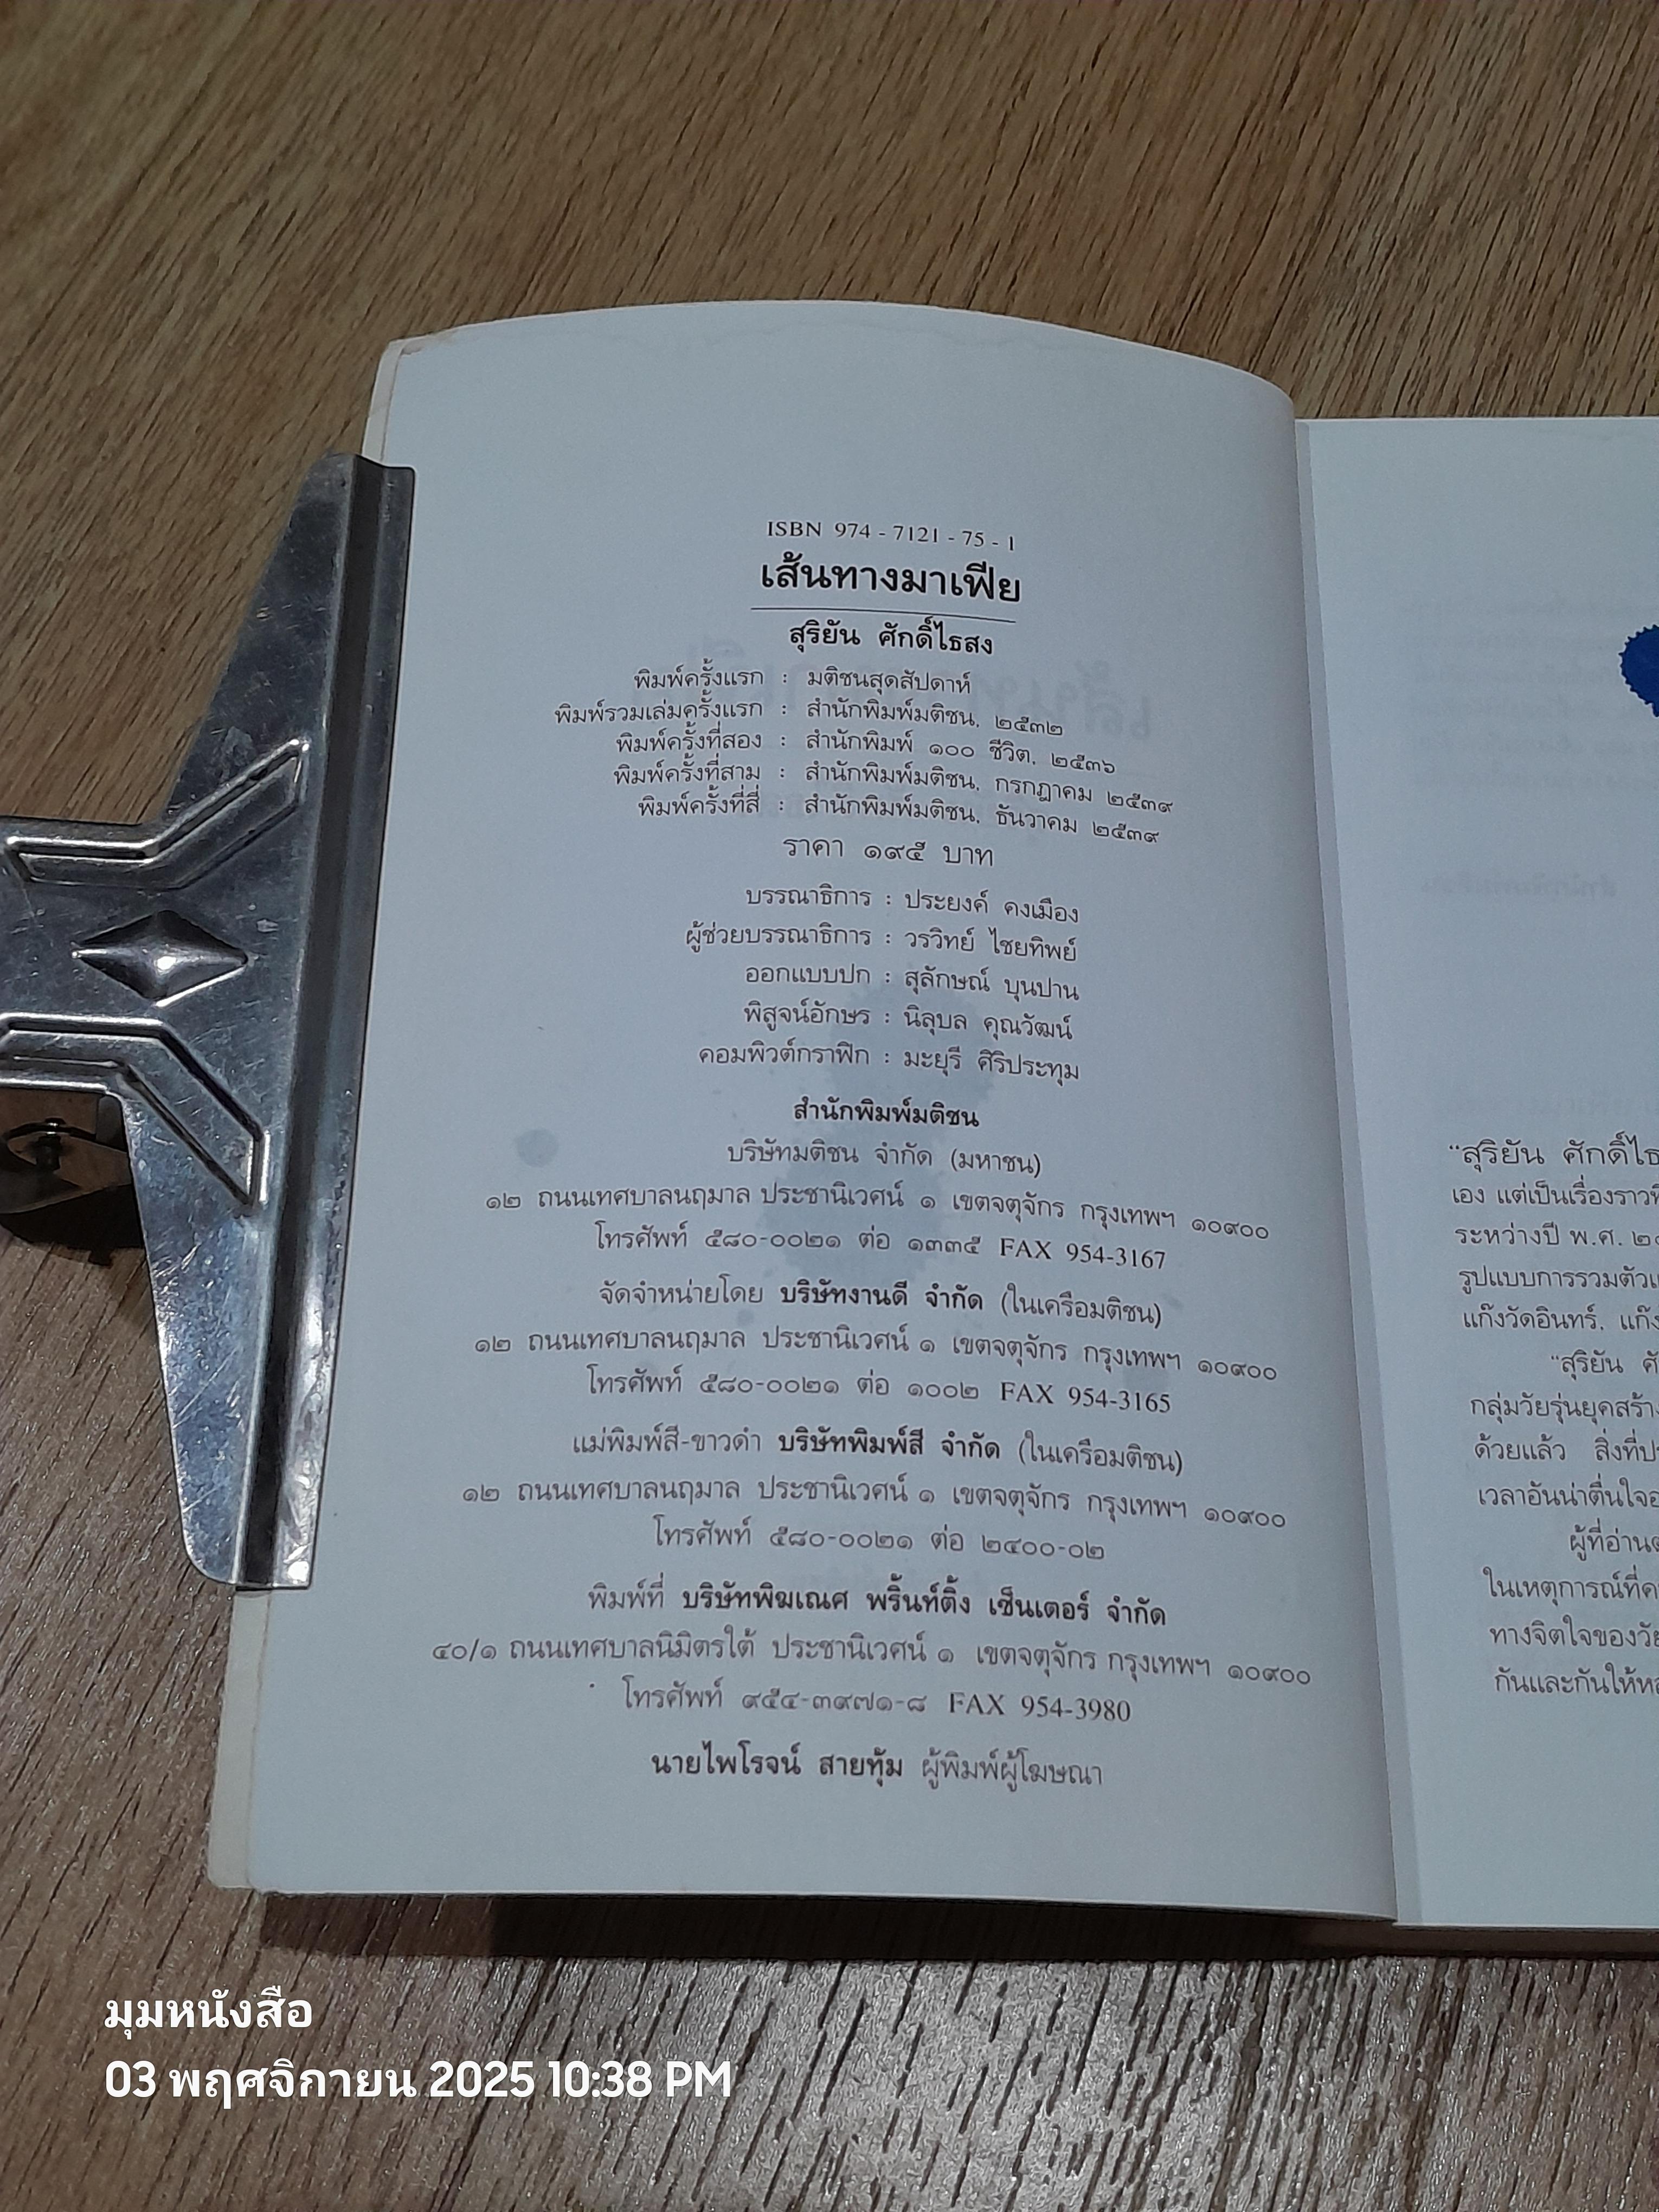 ISBN 974 - 7121 - 75 - 1
เส้นทางมาเฟีย
สุริยัน ศักดิ์ไธสง
พิมพ์ครั้งแรก : มติชนสุดสัปดาห์
พิมพ์รวมเล่มครั้งแรก : สำนักพิมพ์มติชน, ๒๕๓๒
พิมพ์ครั้งที่สอง : สำนักพิมพ์ ๑๐๐ ชีวิต, ๒๕๓๖
พิมพ์ครั้งที่สาม : สำนักพิมพ์มติชน, กรกฎาคม ๒๕๓๙
พิมพ์ครั้งที่สี่ : สำนักพิมพ์มติชน, ธันวาคม ๒๕๓๙
ราคา ๑๙๕ บาท
บรรณาธิการ : ประยงค์ คงเมือง
ผู้ช่วยบรรณาธิการ : วรวิทย์ ไชยทิพย์
ออกแบบปก : สุลักษณ์ บุนปาน
พิสูจน์อักษร : นิลุบล คุณวัฒน์
คอมพิวต์กราฟิก : มะยุรี ศิริประทุม
สำนักพิมพ์มติชน
บริษัทมติชน จำกัด (มหาชน)
๑๒ ถนนเทศบาลนฤมาล ประชานิเวศน์ ๑ เขตจตุจักร กรุงเทพฯ ๑๐๙๐๐
โทรศัพท์ ๕๘๐-๐๐๒๑ ต่อ ๑๓๓๕ FAX 954-3167
จัดจำหน่ายโดย บริษัทงานดี จำกัด (ในเครือมติชน)
๑๒ ถนนเทศบาลนฤมาล ประชานิเวศน์ ๑ เขตจตุจักร กรุงเทพฯ ๑๐๙๐๐
โทรศัพท์ ๕๘๐-๐๐๒๑ ต่อ ๑๐๐๒ FAX 954-3165
แม่พิมพ์สี-ขาวดำ บริษัทพิมพ์สี จำกัด (ในเครือมติชน)
๑๒ ถนนเทศบาลนฤมาล ประชานิเวศน์ ๑ เขตจตุจักร กรุงเทพฯ ๑๐๙๐๐
โทรศัพท์ ๕๘๐-๐๐๒๑ ต่อ ๒๔๐๐-๐๒
พิมพ์ที่ บริษัทพิฆเณศ พริ้นท์ติ้ง เซ็นเตอร์ จำกัด
๔๐/๑ ถนนเทศบาลนิมิตรใต้ ประชานิเวศน์ ๑ เขตจตุจักร กรุงเทพฯ ๑๐๙๐๐
โทรศัพท์ ๙๕๔-๓๙๗๑-๘ FAX 954-3980
นายไพโรจน์ สายทุ้ม ผู้พิมพ์ผู้โฆษณา
"สุริยัน ศักดิ์ไธ
เอง แต่เป็นเรื่องราว
ระหว่างปี พ.ศ.
รูปแบบการรวมตัว
แก๊งวัดอินทร์, แก๊ง
"สุริยัน
กลุ่มวัยรุ่นยุคสร้าง
ด้วยแล้ว สิ่งที่
เวลาอันน่าตื่นใจ
ผู้ที่อ่าน
ในเหตุการณ์ที่
ทางจิตใจของ
กันและกันให้
มุมหนังสือ
03 พฤศจิกายน 2025 10:38 PM